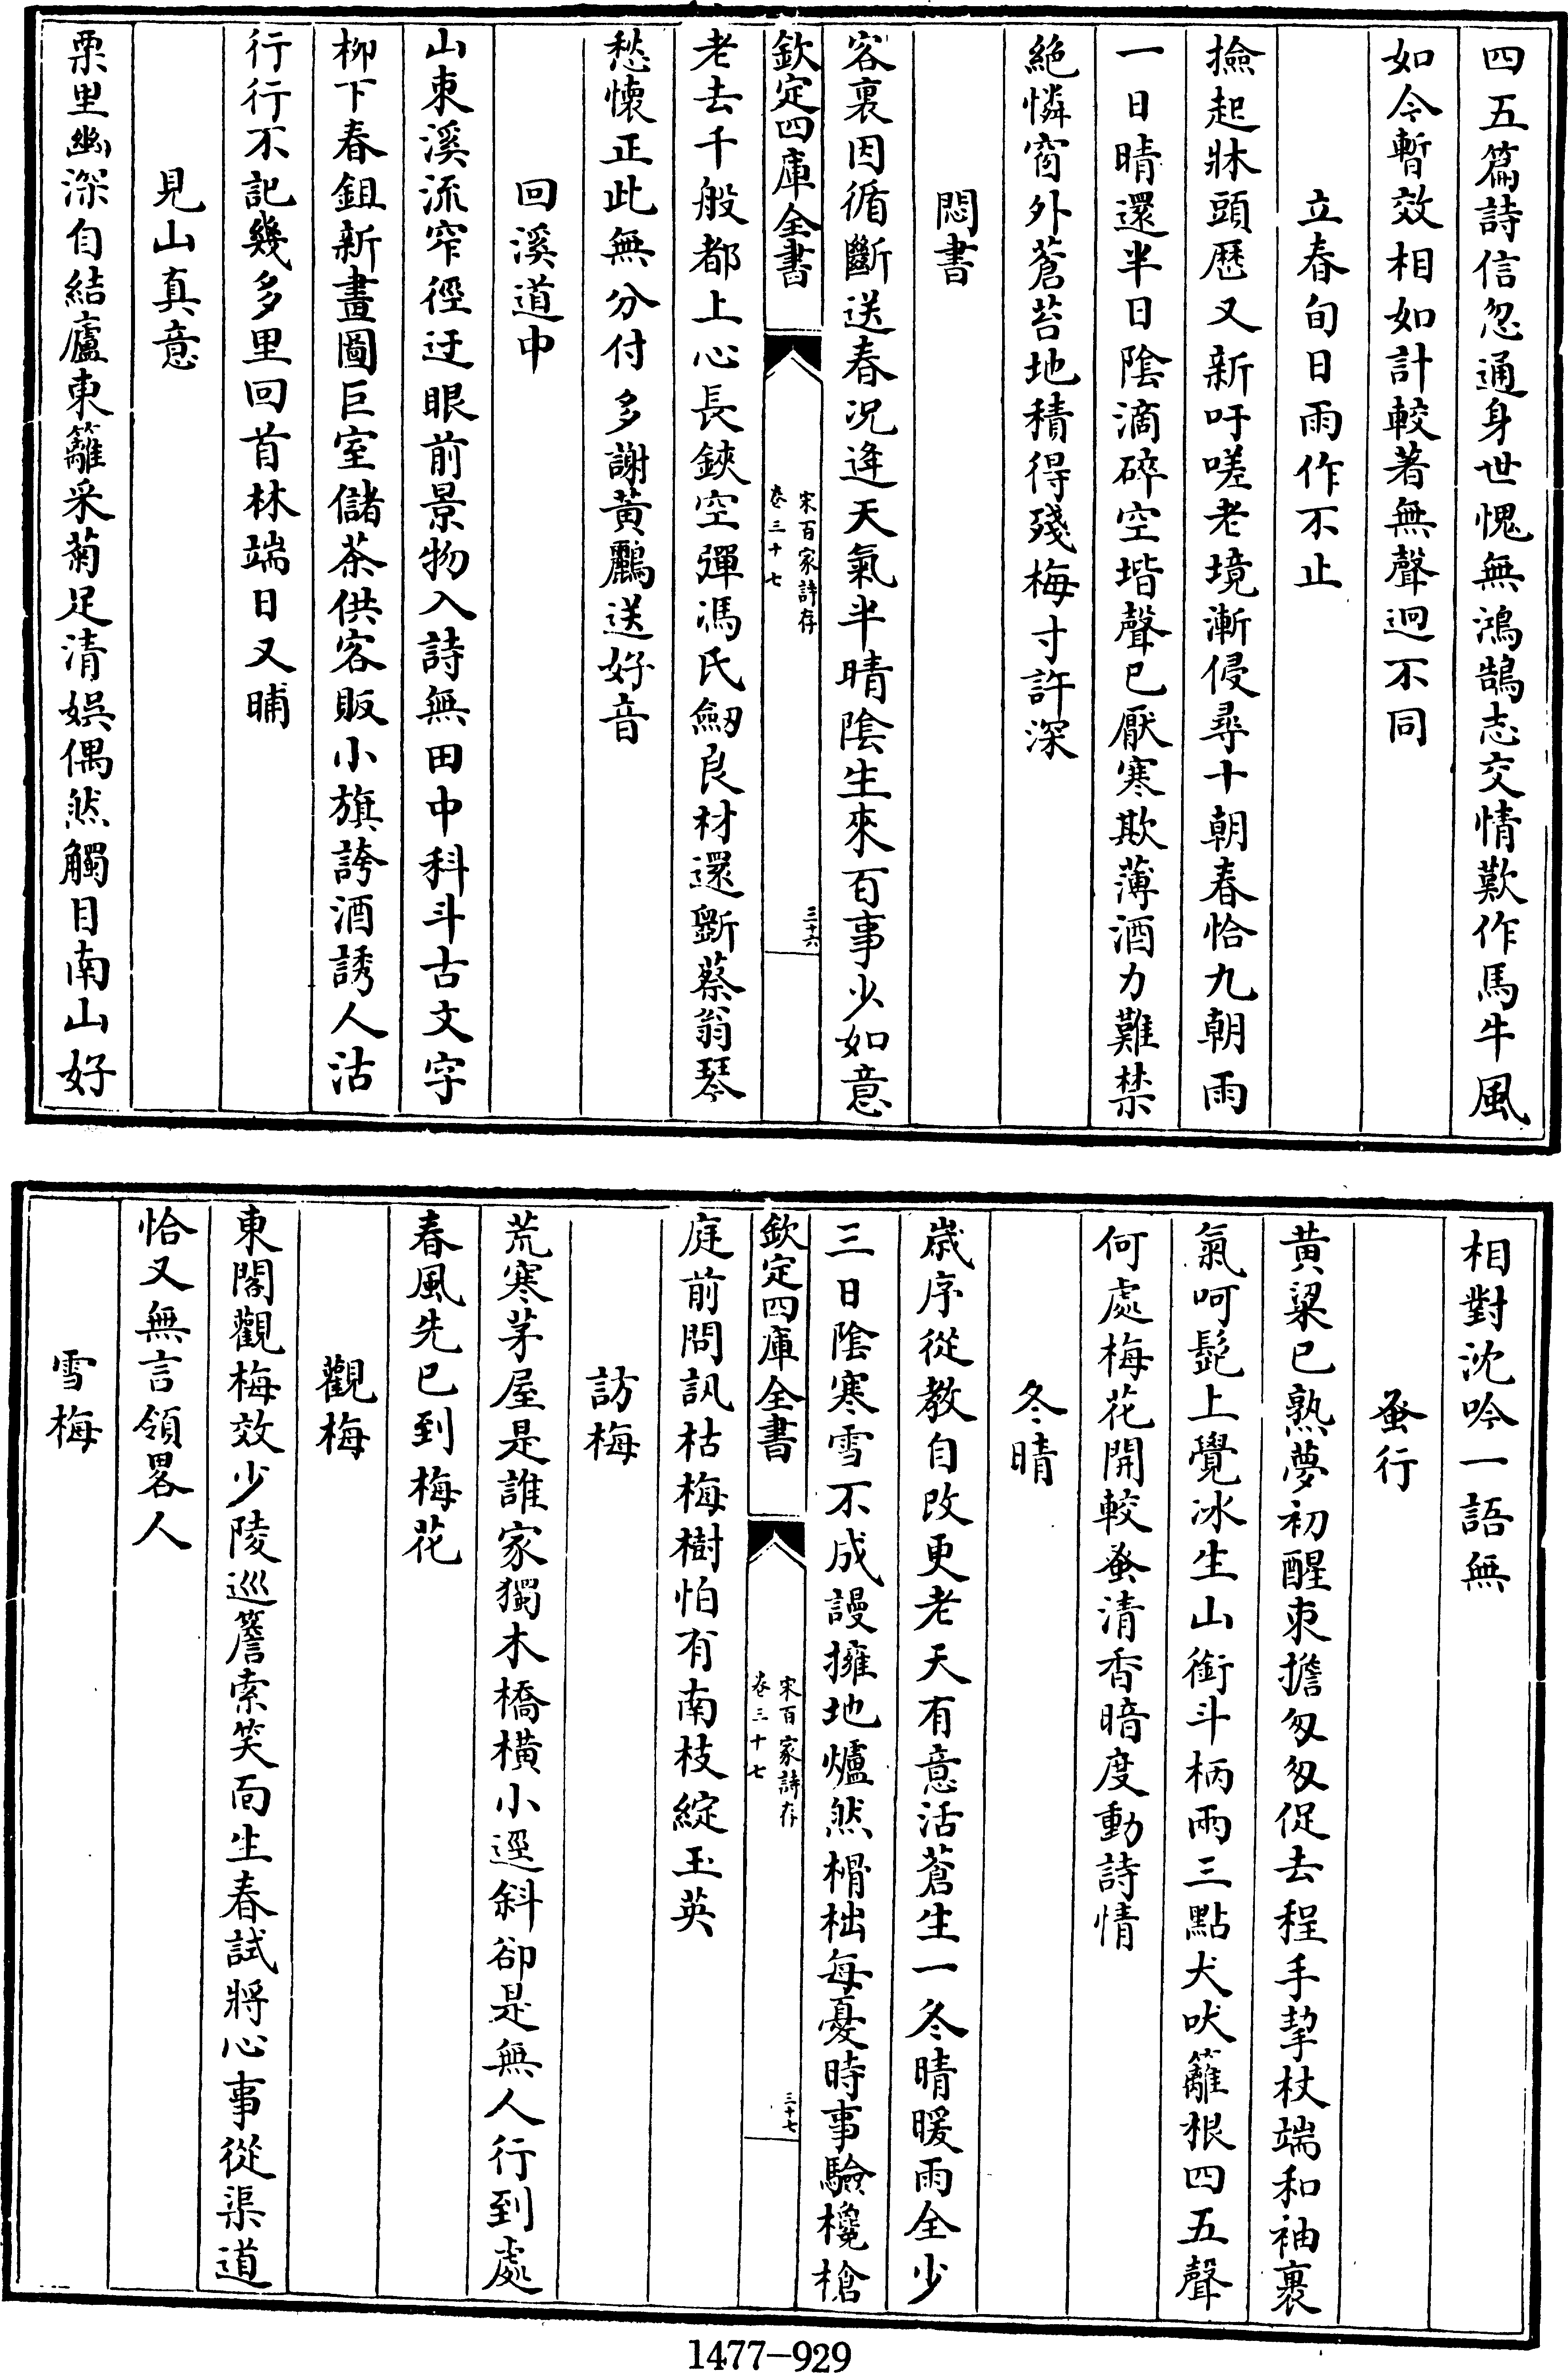 四五篇詩信忽通身世愧無鴻鵠志交情歎作馬牛風
如今暫效相如計較著無聲迥不同
立春旬日雨作不止
撿起牀頭歷又新吁嗟老境漸侵尋十朝春恰九朝雨
一日晴還半日陰滴碎空堦聲已厭寒欺薄酒力難禁
絕憐窗外蒼苔地積得殘梅寸許深
悶書
客裏因循斷送春況逢天氣半晴陰生來百事少如意
欽定四庫全書
宋百家詩存
卷三十七
三十六
老去千般都上心長鋏空彈馮氏劒良材還斵蔡翁琴
愁懷正此無分付多謝黃鸝送好音
回溪道中
山束溪流窄徑迂眼前景物入詩無田中科斗古文字
柳下春鉏新畫圖巨室儲茶供客販小旗誇酒誘人沽
行行不記幾多里回首林端日又晡
見山真意
栗里幽深自結廬東籬采菊足清娛偶然觸目南山好
相對沈吟一語無
蚤行
黃粱已熟夢初醒束擔匆匆促去程手挈杖端和袖裹
氣呵髭上覺冰生山銜斗柄兩三點犬吠籬根四五聲
何處梅花開較蚤清香暗度動詩情
冬晴
歲序從教自改更老天有意活蒼生一冬晴暖雨全少
三日陰寒雪不成謾擁地爐然榾柮每憂時事驗欃槍
欽定四庫全書
宋百家詩存
卷三十七
三十七
庭前問訊枯梅樹怕有南枝綻玉英
訪梅
荒寒茅屋是誰家獨木橋橫小逕斜卻是無人行到處
春風先已到梅花
觀梅
東閣觀梅效少陵巡簷索笑面生春試將心事從渠道
恰又無言領畧人
雪梅
1477-929